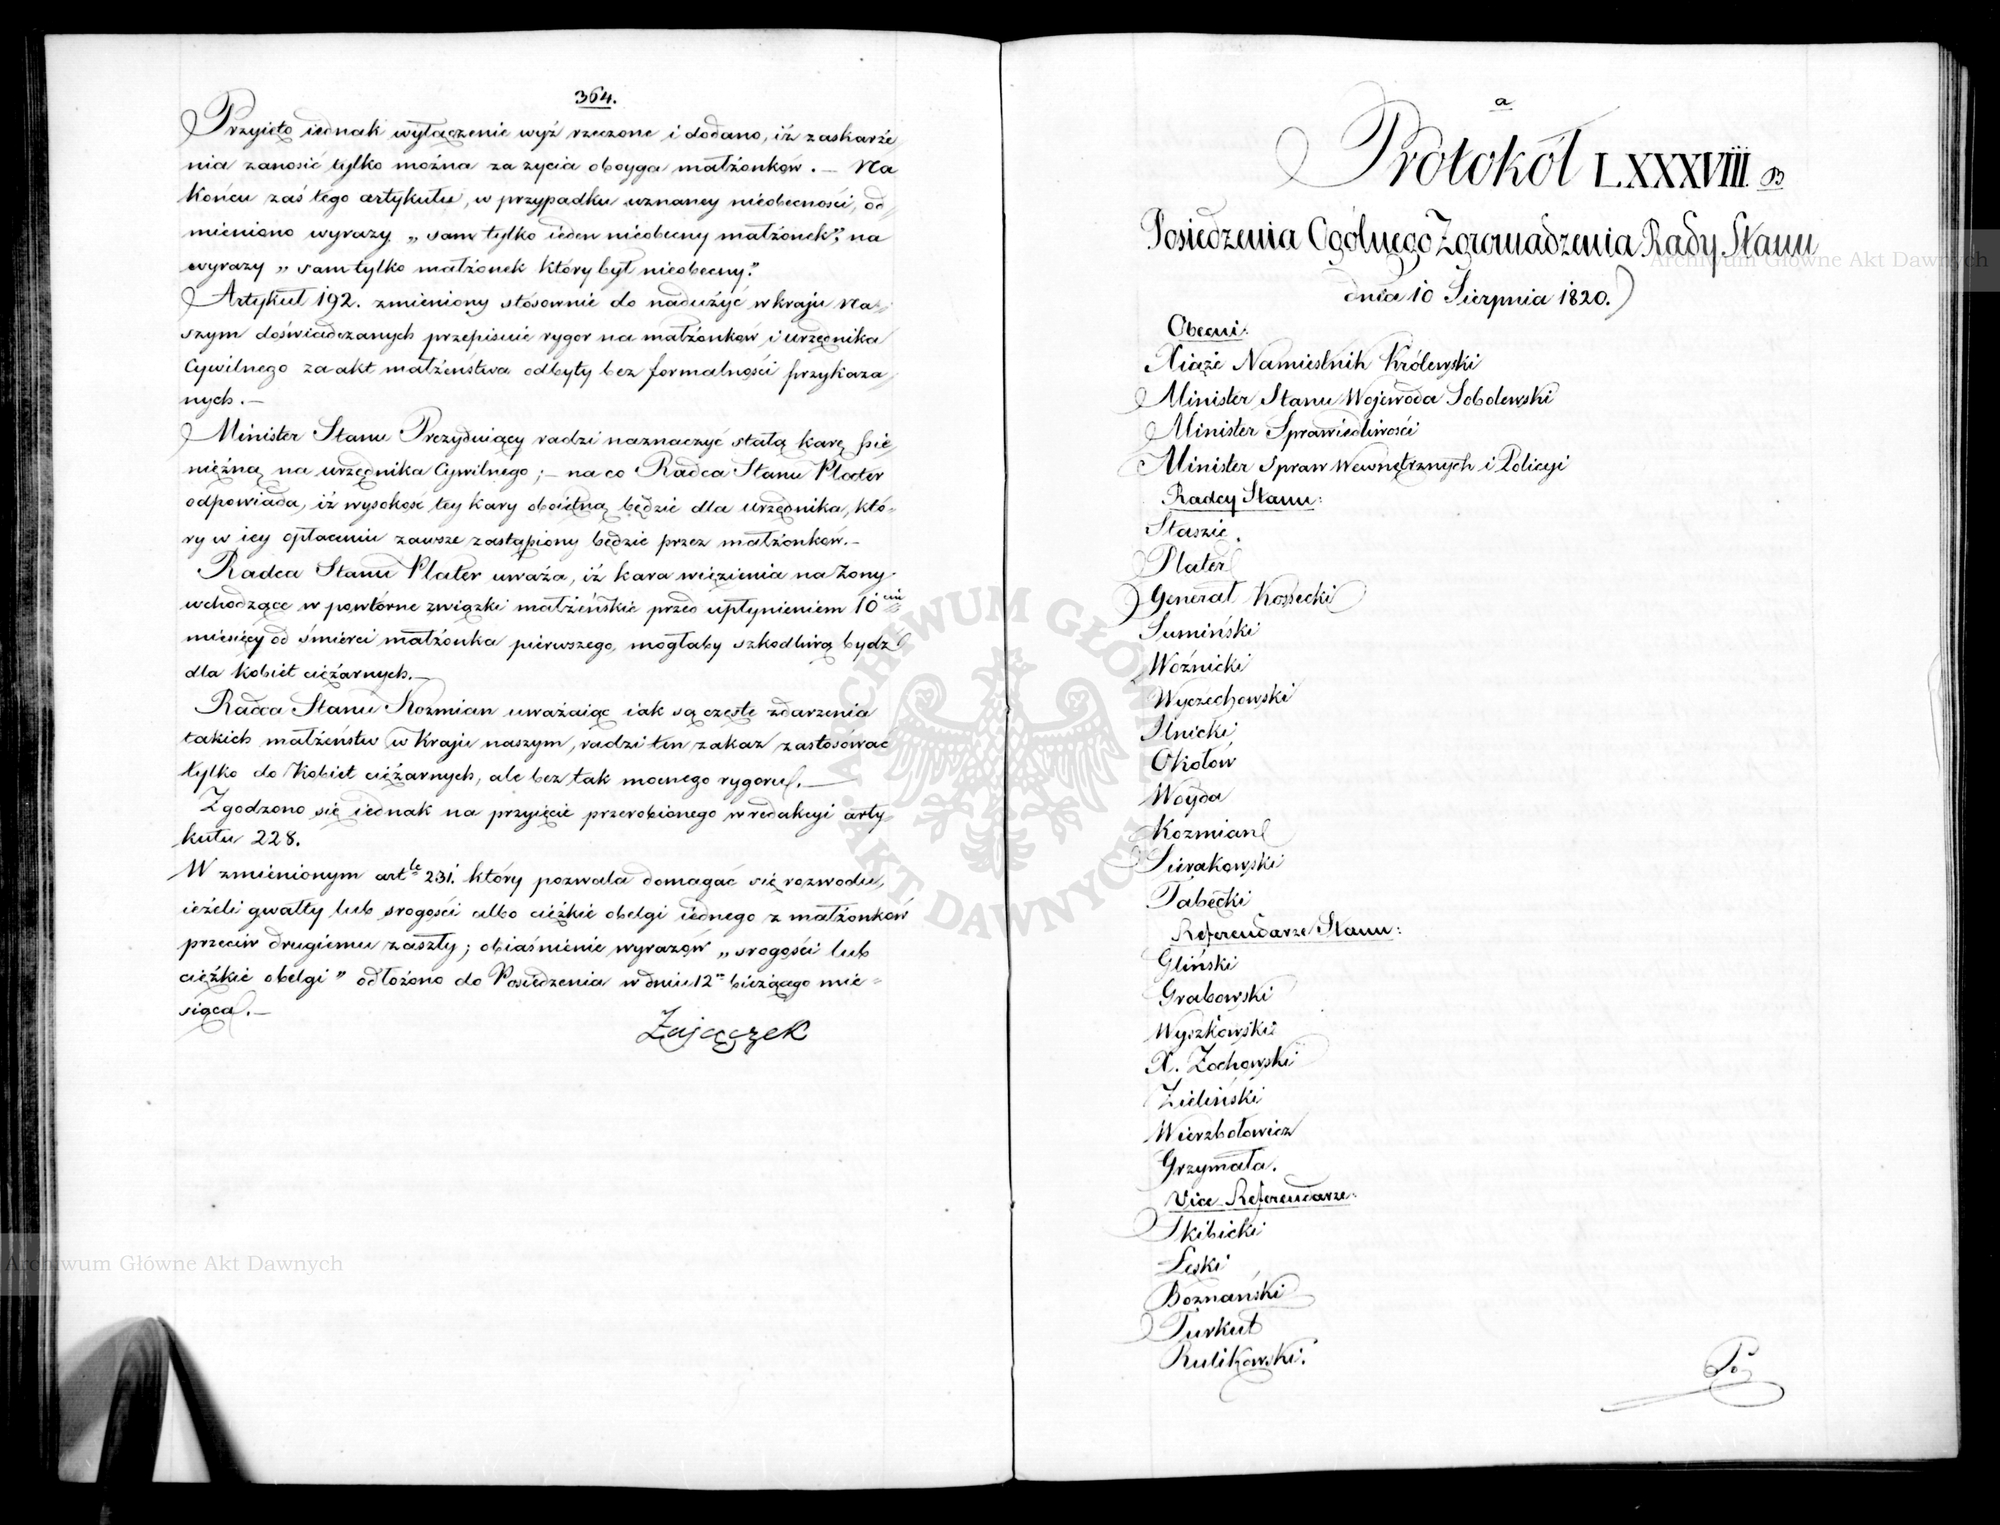 364.
Przyięto iednak wyłączenie wyż rzeczone i dodano, iż zaskarże
nia zanosić tylko można za życia oboyga małżonków. — Na
końcu zaś tego artykułu, w przypadku uznaney nieobecności, od-
mieniono wyrazy „sam tylko ieden nieobecny małżonek", na
wyrazy „sam tylko małżonek który był nieobecny."
Artykuł 192. zmieniony stósownie do nadużyć w kraju na-
szym doświadczanych przepisuie rygor na małżonków i urzędnika
Cywilnego za akt małżeństwa odbyty bez formalności przykaza
nych. —
Minister Stanu Prezyduiący radzi naznaczyć stałą karę pie
niężną na urzędnika Cywilnego; — na co Radca Stanu Plater
odpowiada, iż wysokość tey kary oboiętną będzie dla urzędnika, któ-
ry w iey opłaceniu zawsze zastąpiony będzie przez małżonków. —
Radca Stanu Plater uważa, iż kara więzienia na żony
wchodzące w powtórne związki małżeńskie przed upłynieniem 10ciu
miesięcy od śmierci małżonka pierwszego, mogłaby szkodliwą bydź
dla kobiet ciężarnych. —
Radca Stanu Kozmian uważaiąc iak są częste zdarzenia
takich małżeństw w Kraju naszym, radzi ten zakaz zastosować
tylko do Kobiet ciężarnych, ale bez tak mocnego rygoru. —
Zgodzono się iednak na przyięcie przerobionego w redakcyi arty
kułu 228.
W zmienionym artle 231. który pozwala domagać się rozwodu,
ieżeli gwałty lub srogości albo ciężkie obelgi iednego z małżonków
przeciw drugiemu zaszły; obiaśnienie wyrazów „srogości lub
ciężkie obelgi" odłożono do Posiedzenia w dniu 12m bieżącego mie-
siąca. —
Zajączek
a
Protokół LXXXVIII. B
Posiedzenia Ogólnego Zgromadzenia Rady Stanu
dnia 10 Sierpnia 1820.
Obecni:
Xiąże Namiestnik Królewski
Minister Stanu Wojewoda Sobolewski
Minister Sprawiedliwości
Minister Spraw Wewnętrznych i Policyi
Radcy Stanu:
Staszic.
Plater
Generał Kossecki
Sumiński
Woźnicki
Wyczechowski
Ilnicki
Okołów
Woyda
Kozmian
Sierakowski
Tabęcki
Referendarze Stanu:
Gliński
Grabowski
Wyszkowski
X. Żochowski
Zieliński
Wierzbołowicz
Grzymała.
Vice Referendarze:
Skibicki
Łęski
Boznański
Turkuł
Kulikowski.
Po
Archiwum Główne Akt Dawnych
Archiwum Główne Akt Dawnych
ARCHIWUM GŁÓWNE AKT DAWNYCH